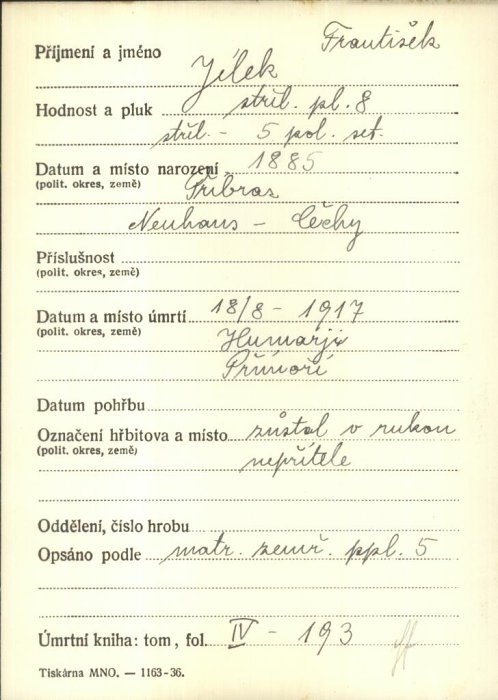 František
Příjmení a jméno Jílek
Hodnost a pluk stříl. pl. 8
stříl. - 5 pol. set.
Datum a místo narození 1885
(polit. okres, země) Příbraz
Neuhaus - Čechy
Příslušnost
(polit. okres, země)
Datum a místo úmrtí 18/8 - 1917
(polit. okres, země) Humarji
Přímoří
Datum pohřbu
Označení hřbitova a místo zůstal v rukou
(polit. okres, země) nepřítele
Oddělení, číslo hrobu
Opsáno podle matr. zemř. ppl. 5
Úmrtní kniha: tom, fol. IV - 193
Tiskárna MNO. — 1163-36.